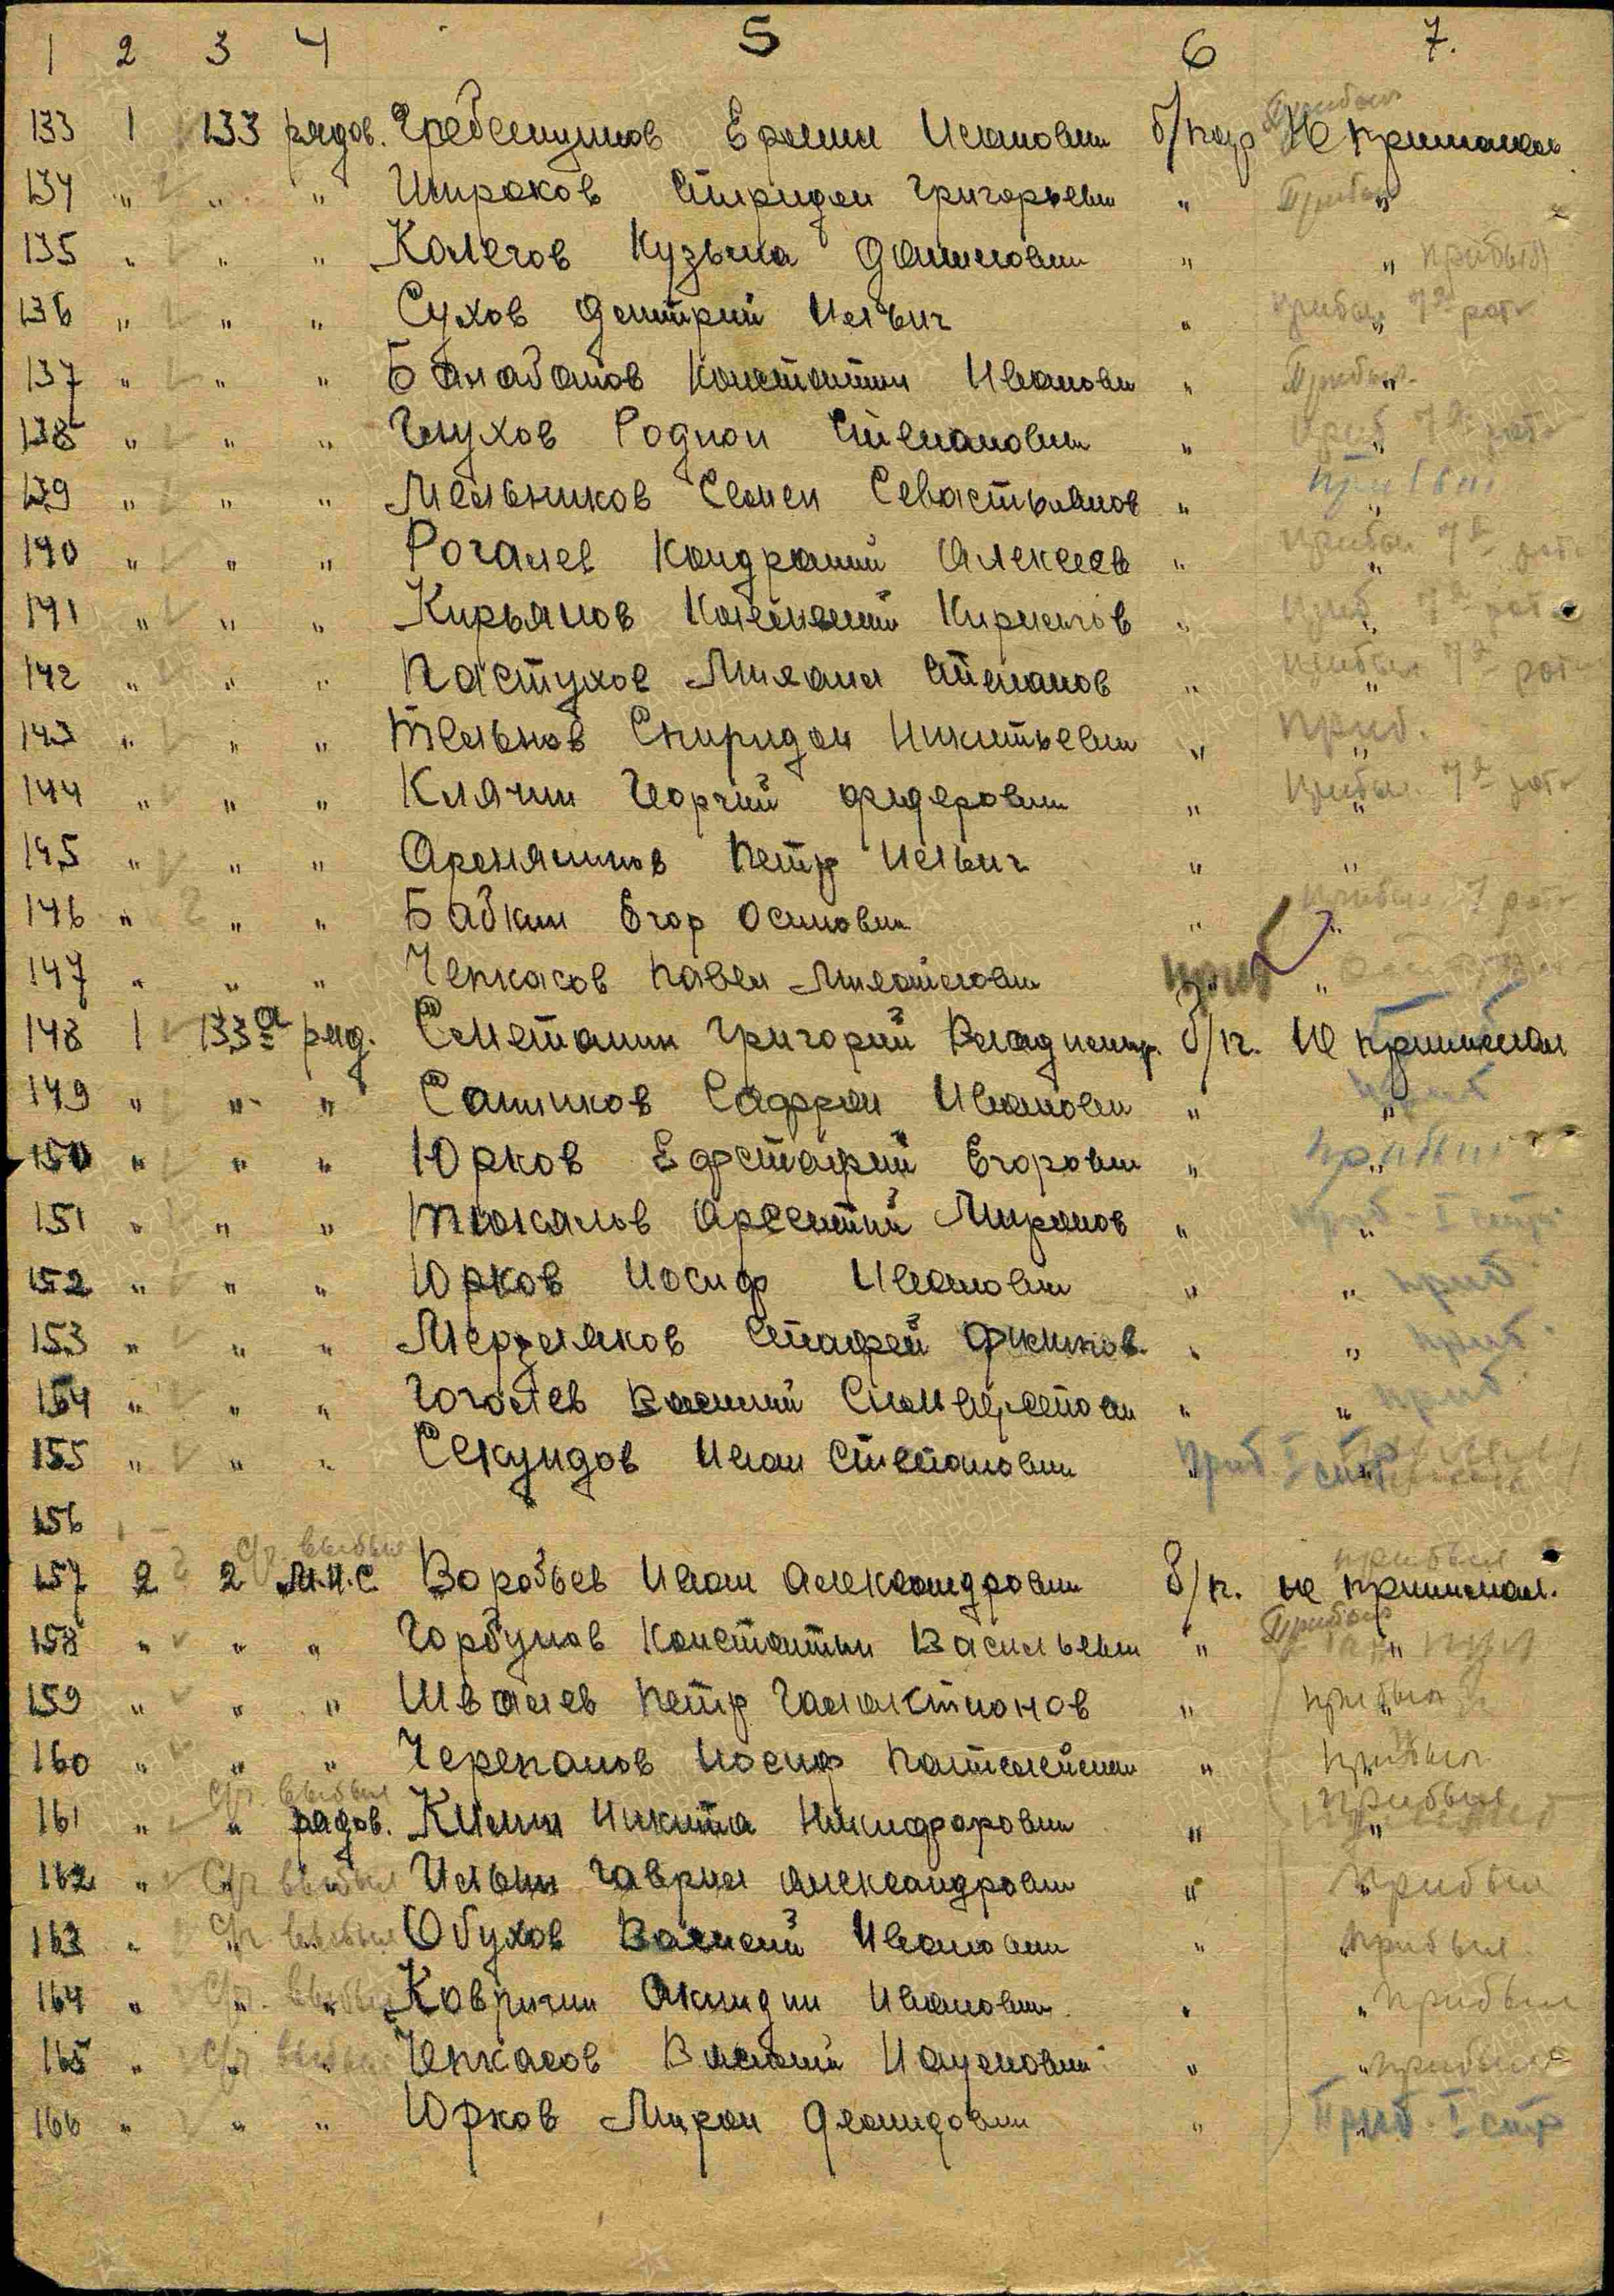 1 2 3 4 5 6 7.
133 1 133 рядов. Гребенщиков Ермил Иванович б/пар Не принимал Прибыл
134 " " " Широков Спиридон Григорьевич " " Прибыл
135 " " " Калегов Кузьма Данилович " " прибыл
136 " " " Сухов Дмитрий Ильич " " прибыл 7й рот
137 " " " Балабанов Константин Иванович " " Прибыл.
138 " " " Глухов Родион Степанович " " приб 7й рот
139 " " " Мельников Семен Севастьянов " " прибыл
140 " " " Рогалев Кондратий Алексеев " " прибыл 7й рот
141 " " " Кирьянов Кирилов " " приб 7й рот
142 " " " Пастухов Михаил Степанов " " прибыл 7й рот
143 " " " Тельнов Спиридон Никитьевич " " приб.
144 " " " Клячин Георгий Федорович " " прибыл 7й рот
145 " " " Петр Ильич " "
146 " " " Бабкин Егор Осипович " " прибыл 7 рот
147 " " " Черкасов Павел Михайлович приб "
148 1 133а ряд. Сметанин Григорий Владимир. б/п. Не принимал
149 " " " Санников Сафрон Иванович " " приб
150 " " " Юрков Ефстафий Егорович " " прибыл
151 " " " Тюкалов Арсентий Миронов " " приб I стр
152 " " " Юрков Иосиф Иванович " " приб
153 " " " Мерзляков Стафей " " приб
154 " " " Гоголев Василий " " приб
155 " " " Секундов Иван Степанович " " приб I стр
156
157 2 2 М.Н.С. Воробьев Иван Александрович б/п. не принимал. выбыл прибыл
158 " " " Горбунов Константин Васильевич " " Прибыл
159 " " " Швалев Петр Галактионов " " прибыл
160 " " " Черепанов Иосиф Пантелейман " " прибыл
161 " " рядов. Клепин Никита Никифорович " " выбыл прибыл
162 " " " Ильин Гаврил Александрович " " выбыл прибыл
163 " " " Обухов Василий Иванович " " выбыл прибыл
164 " " " Ковригин Акиндин Иванович " " выбыл прибыл
165 " " " Черкасов Василий Наумович " " выбыл прибыл
166 " " " Юрков Мирон Леонидович " " Приб. I стр